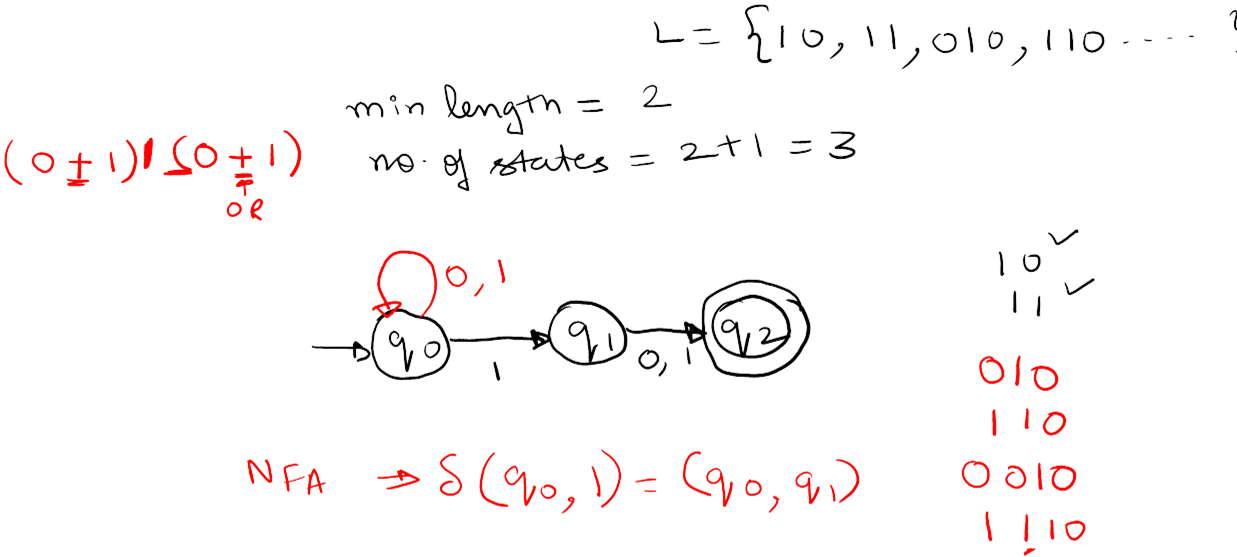 L = {10, 11, 010, 110 ---- }
min length = 2
no. of states = 2+1 = 3
(0 + 1)1(0 + 1)
OR
0, 1
q0
1
q1
0, 1
q2
10 ✓
11 ✓
010
110
0010
1110
NFA ⇒ δ(q0, 1) = (q0, q1)